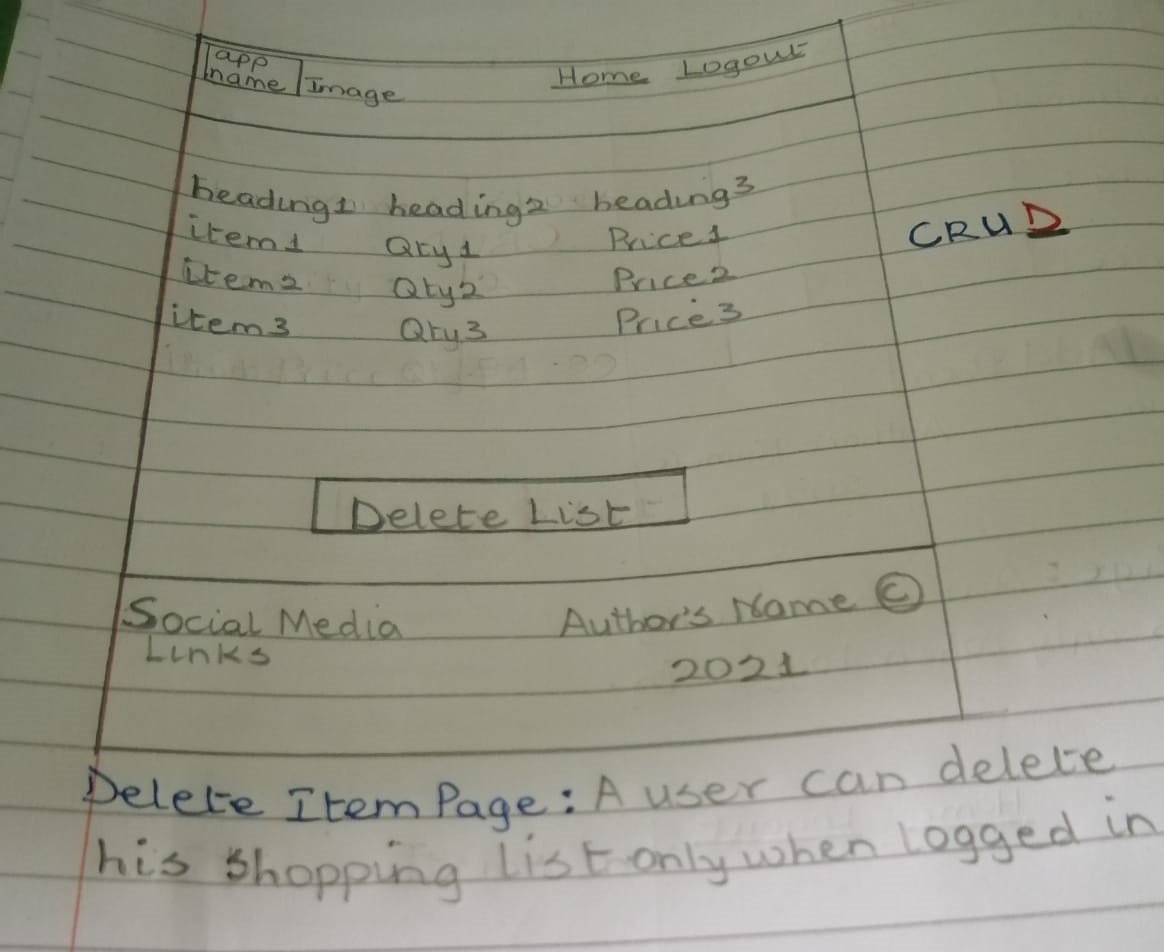 app
name Image Home Logout
heading1 heading2 heading3
item1 Qty1 Price1
CRUD
item2 Qty2 Price2
item3 Qty3 Price3
Delete List
Social Media Author's Name ©
Links 2021
Delete Item Page: A user can delete
his shopping list only when logged in